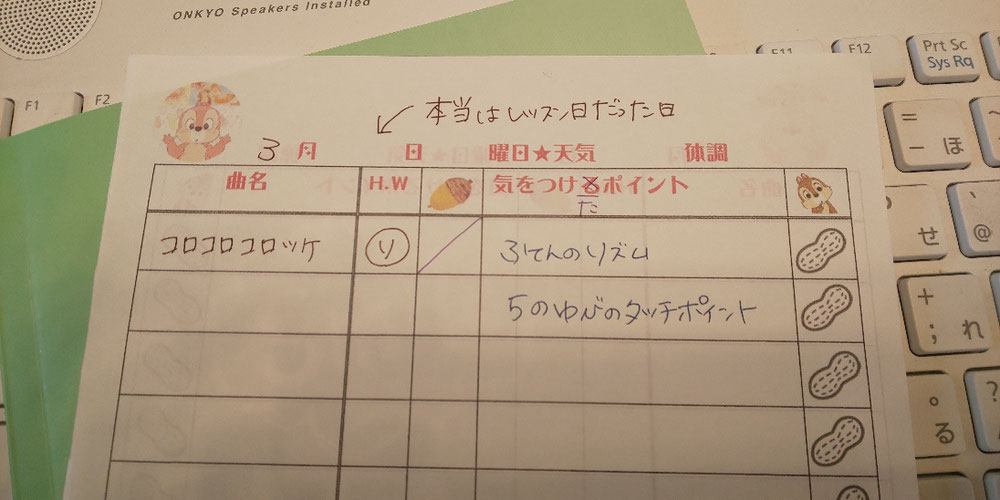 ONKYO Speakers Installed
F1
F2
F11
F12
Prt Sc
Sys Rq
本当はレッスン日だった日
3月 日 曜日★天気 体調
曲名 H.W 気をつけるポイント
た
コロコロコロッケ リ ふてんのリズム
5のゆびのタッチポイント
=
- ほ
せ
@
+
; れ
?
。
る